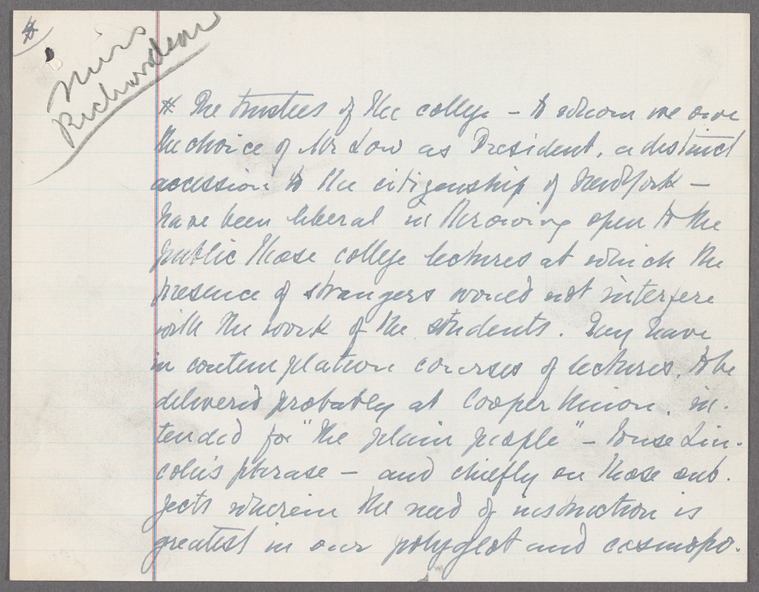 #
Miss
Richardson
# The trustees of the college – to whom we owe
the choice of Mr Low as President, a distinct
accession to the citizenship of New York –
have been liberal in throwing open to the
public those college lectures at which the
presence of strangers would not interfere
with the work of the students. They have
in contemplation courses of lectures, to be
delivered probably at Cooper Union, in-
tended for "the plain people" – to use Lin-
coln's phrase – and chiefly on those sub-
jects wherein the need of instruction is
greatest in our polyglot and cosmopo-